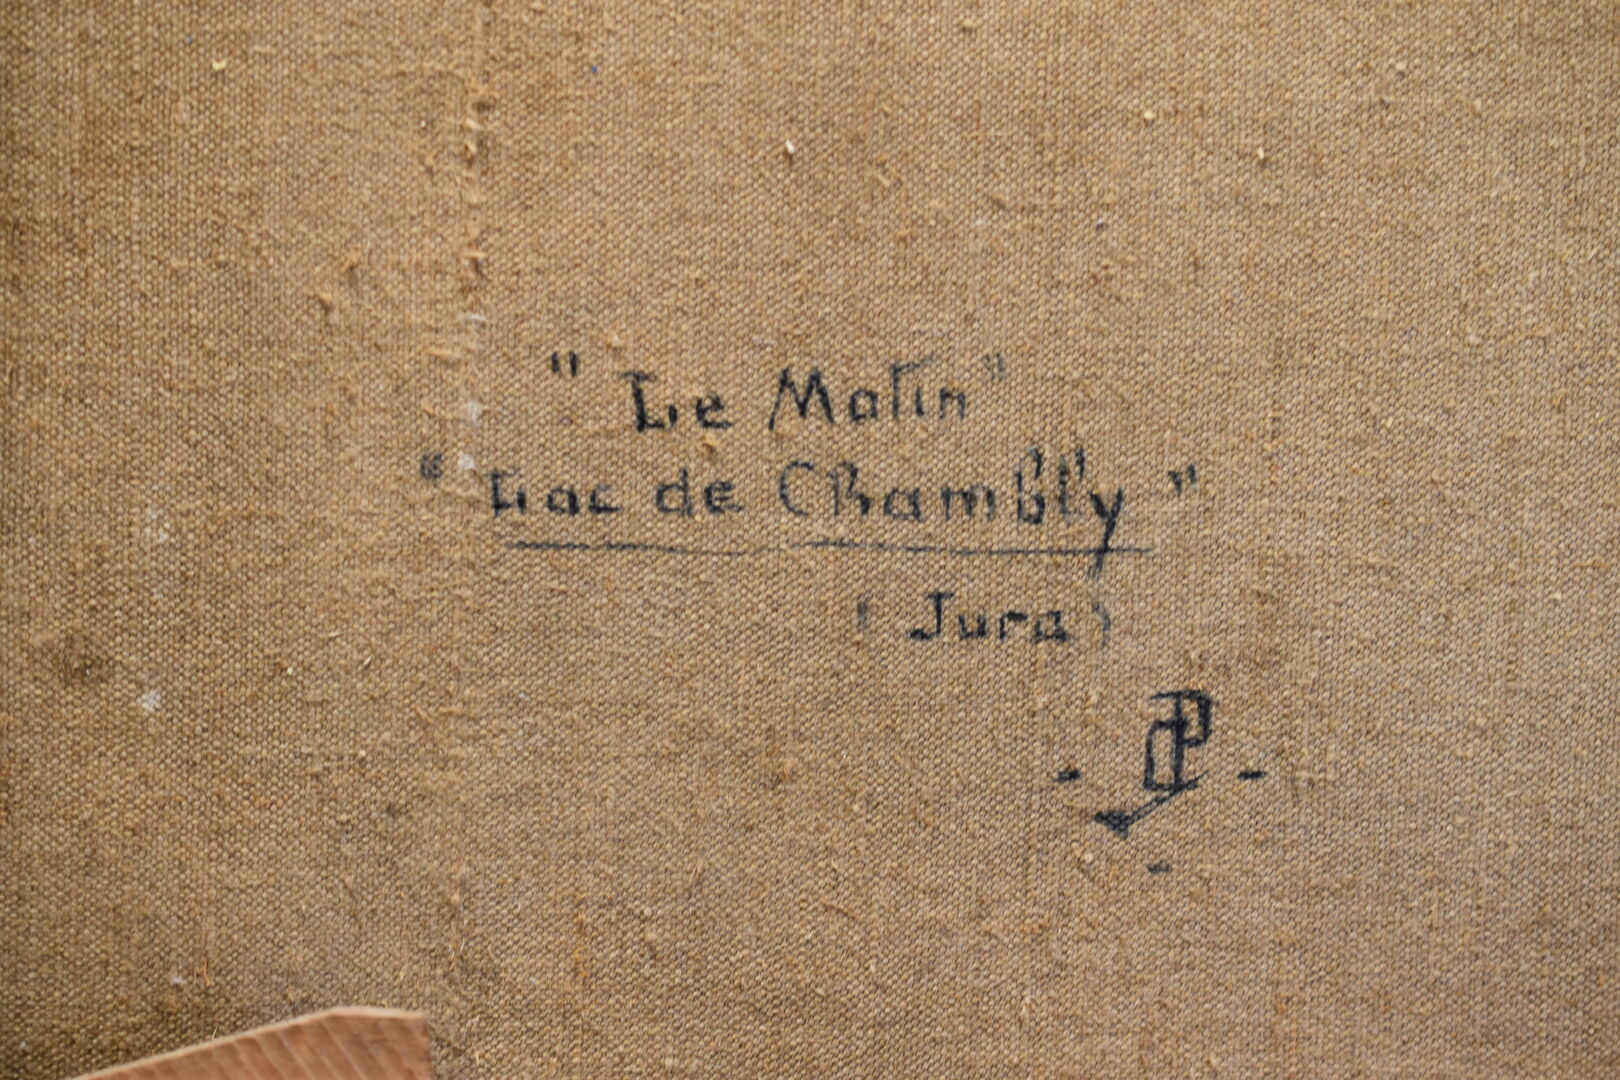 "Le Matin"
"Lac de Chambly"
(Jura)